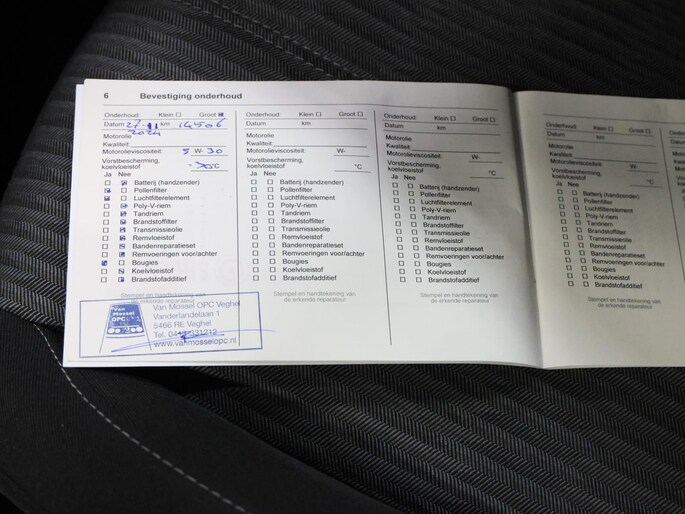 6 Bevestiging onderhoud
Onderhoud: Klein Groot
Datum 27-11 km 14506
2024
Motorolie
Kwaliteit:
Motorolieviscositeit: 5 W- 30
Vorstbescherming,
koelvloeistof °C
Ja Nee
Batterij (handzender)
Pollenfilter
Luchtfilterelement
Poly-V-riem
Tandriem
Brandstoffilter
Transmissieolie
Remvloeistof
Bandenreparatieset
Remvoeringen voor/achter
Bougies
Koelvloeistof
Brandstofadditief
Stempel en handtekening van
de erkende reparateur
Van Mossel OPC
Van Mossel OPC Veghel
Vanderlandelaan 1
5466 RE Veghel
Tel.
www.vanmosselopc.nl
Onderhoud: Klein Groot
Datum km
Motorolie
Kwaliteit:
Motorolieviscositeit: W-
Vorstbescherming,
koelvloeistof °C
Ja Nee
Batterij (handzender)
Pollenfilter
Luchtfilterelement
Poly-V-riem
Tandriem
Brandstoffilter
Transmissieolie
Remvloeistof
Bandenreparatieset
Remvoeringen voor/achter
Bougies
Koelvloeistof
Brandstofadditief
Stempel en handtekening van
de erkende reparateur
Onderhoud: Klein Groot
Datum km
Motorolie
Kwaliteit:
Motorolieviscositeit: W-
Vorstbescherming,
koelvloeistof °C
Ja Nee
Batterij (handzender)
Pollenfilter
Luchtfilterelement
Poly-V-riem
Tandriem
Brandstoffilter
Transmissieolie
Remvloeistof
Bandenreparatieset
Remvoeringen voor/achter
Bougies
Koelvloeistof
Brandstofadditief
Stempel en handtekening van
de erkende reparateur
Onderhoud: Klein Groot
Datum km
Motorolie
Kwaliteit:
Motorolieviscositeit: W-
Vorstbescherming,
koelvloeistof °C
Ja Nee
Batterij (handzender)
Pollenfilter
Luchtfilterelement
Poly-V-riem
Tandriem
Brandstoffilter
Transmissieolie
Remvloeistof
Bandenreparatieset
Remvoeringen voor/achter
Bougies
Koelvloeistof
Brandstofadditief
Stempel en handtekening van
de erkende reparateur